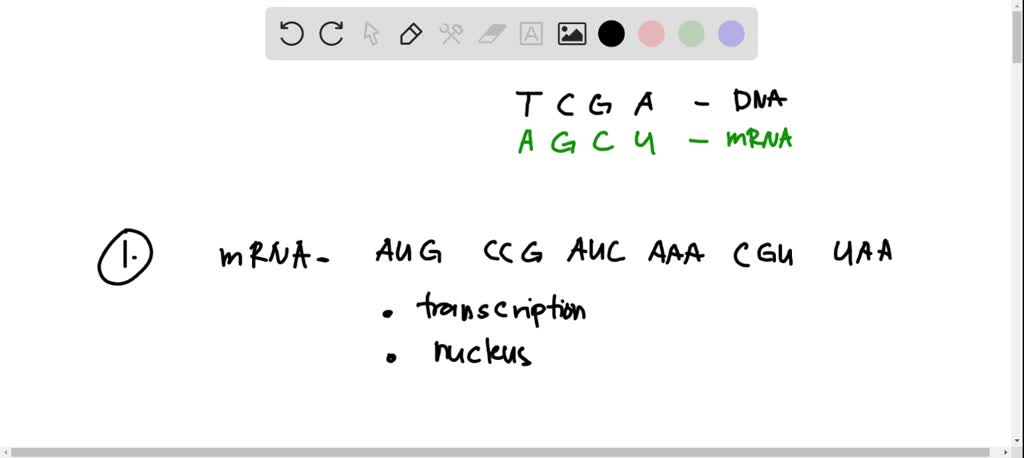 T C G A - DNA
A G C U - mRNA
1. mRNA- AUG CCG AUC AAA CGU UAA
• transcription
• nucleus